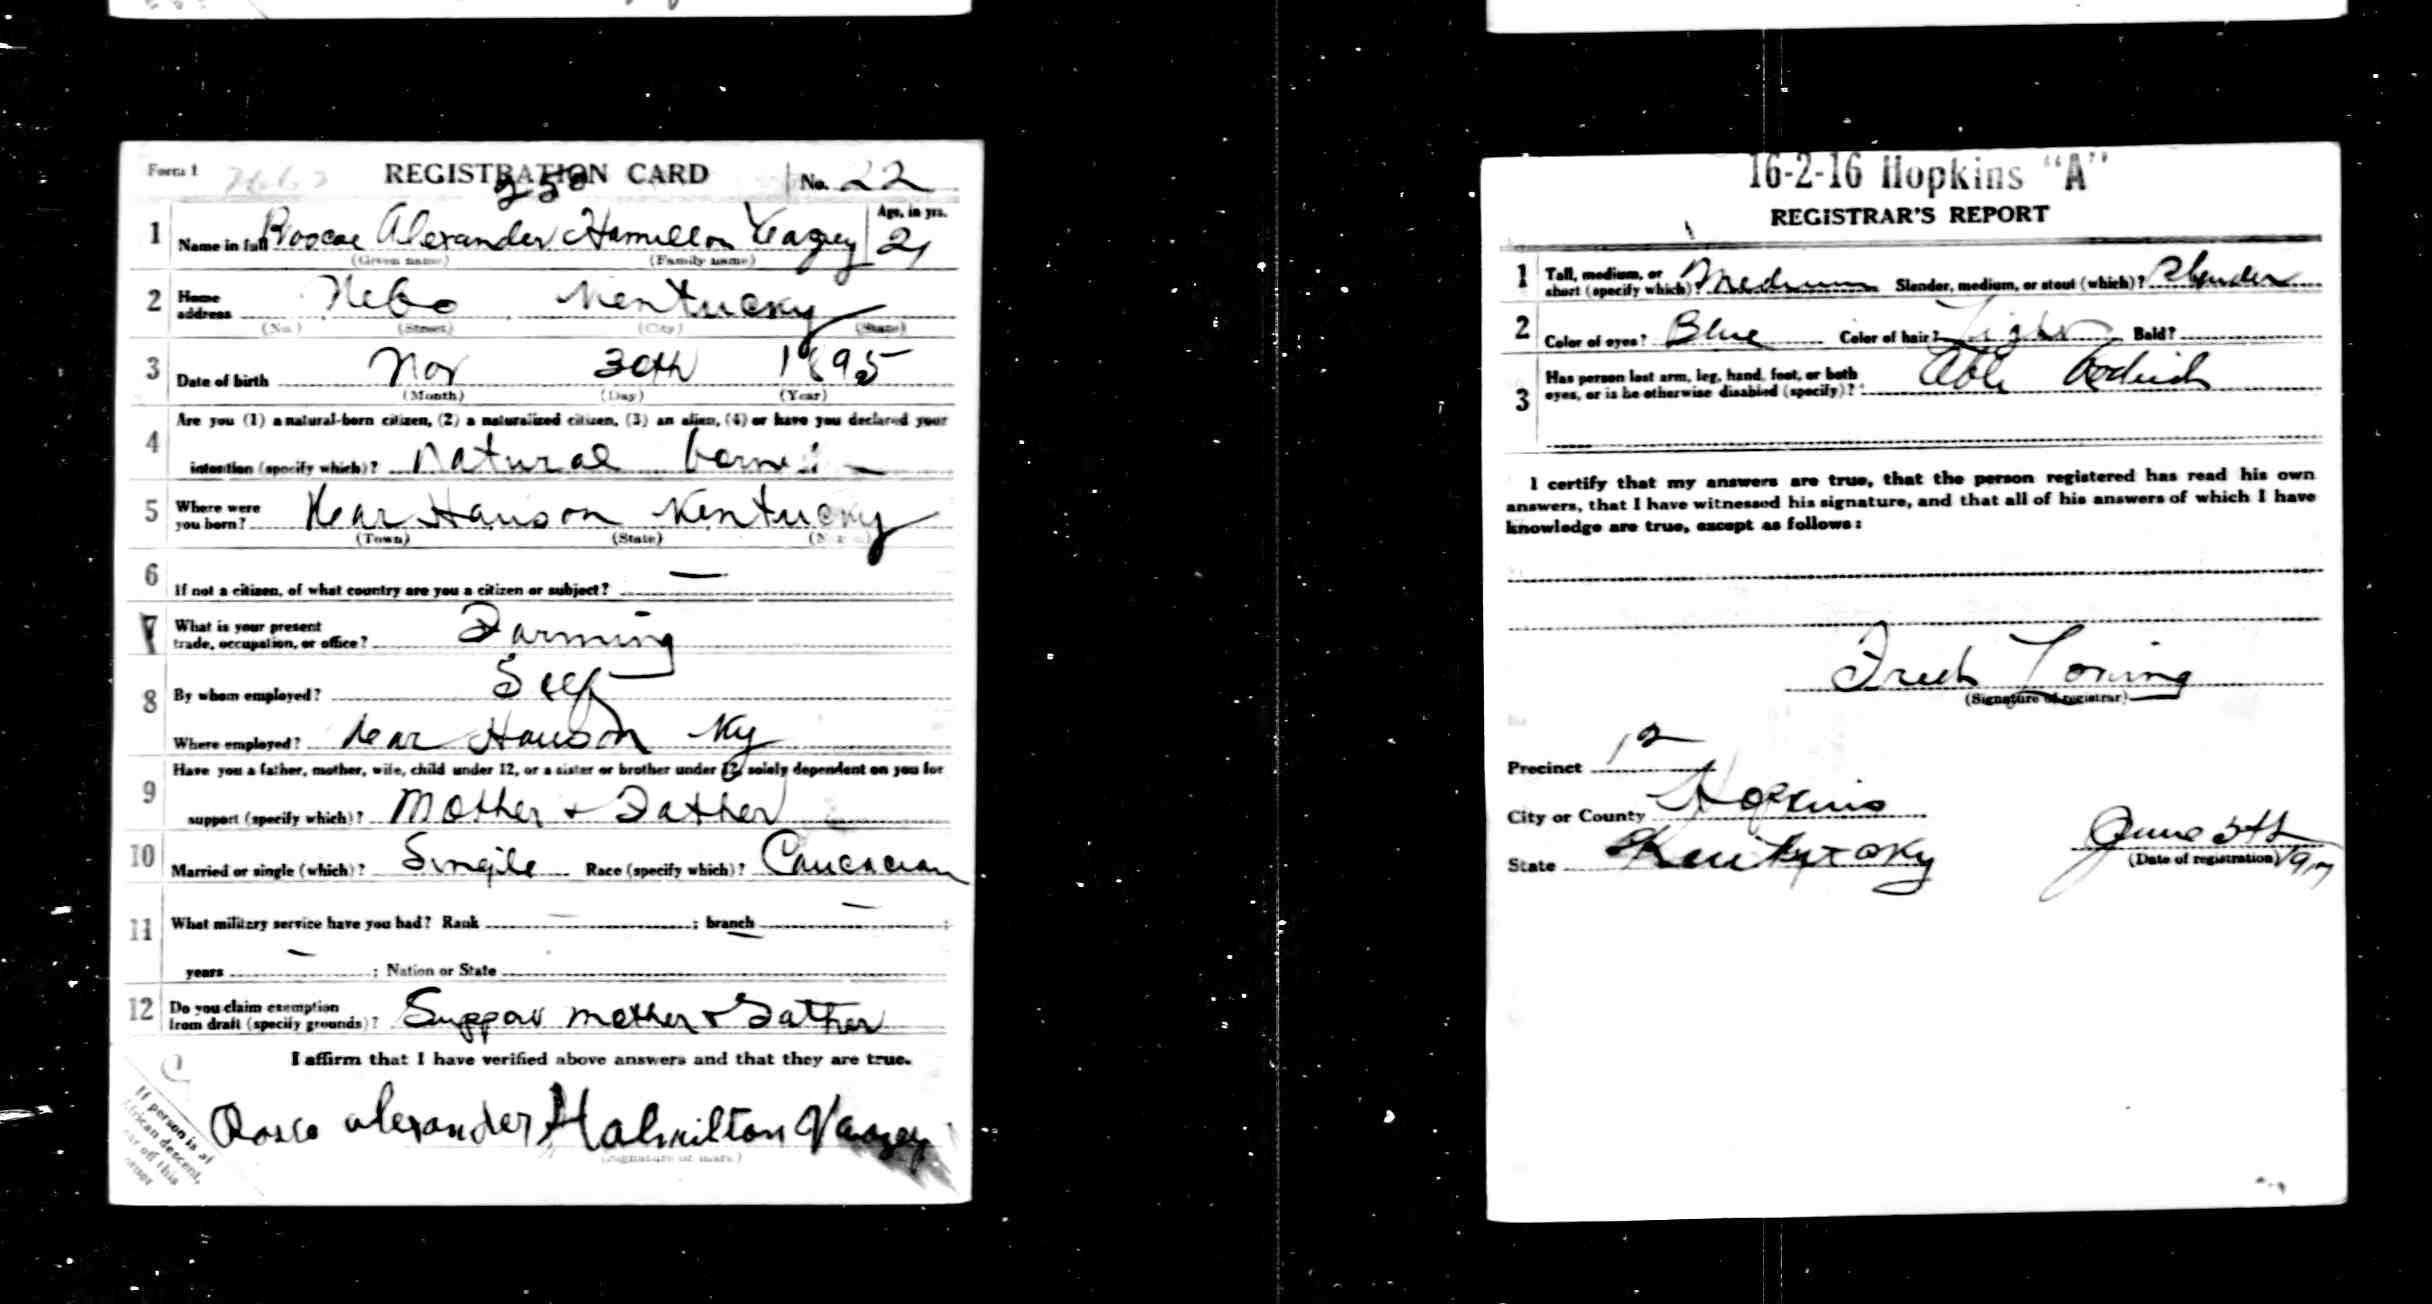 Form 1 REGISTRATION CARD No. 22
258
1 Name in full Roscoe Alexander Hamilton Veazey Age, in yrs. 21
(Given name) (Family name)
2 Home address Nebo Kentucky
(No.) (Street) (City) (State)
3 Date of birth Nov 30th 1895
(Month) (Day) (Year)
4 Are you (1) a natural-born citizen, (2) a naturalized citizen, (3) an alien, (4) or have you declared your
intention (specify which)? Natural born
5 Where were you born? Near Hanson Kentucky
(Town) (State) (Nation)
6 If not a citizen, of what country are you a citizen or subject? —
7 What is your present trade, occupation, or office? Farming
8 By whom employed? Self
Where employed? Near Hanson Ky
9 Have you a father, mother, wife, child under 12, or a sister or brother under 12, solely dependent on you for
support (specify which)? Mother + Father
10 Married or single (which)? Single Race (specify which)? Caucacian
11 What military service have you had? Rank — ; branch — ;
years — ; Nation or State —
12 Do you claim exemption from draft (specify grounds)? Suppor mother + Father
I affirm that I have verified above answers and that they are true.
Rosco alexander Halmilton Veazey
(Signature or mark)
If person is of
African descent,
tear off this
corner
16-2-16 Hopkins "A"
REGISTRAR'S REPORT
1 Tall, medium, or short (specify which)? Medium Slender, medium, or stout (which)? Slender
2 Color of eyes? Blue Color of hair? Light Bald?
3 Has person lost arm, leg, hand, foot, or both eyes, or is he otherwise disabled (specify)? Able Bodied
I certify that my answers are true, that the person registered has read his own
answers, that I have witnessed his signature, and that all of his answers of which I have
knowledge are true, except as follows:
Fred Loving
(Signature of registrar)
Precinct 12
City or County Hopkins
State Kentucky
June 5th 1917
(Date of registration)